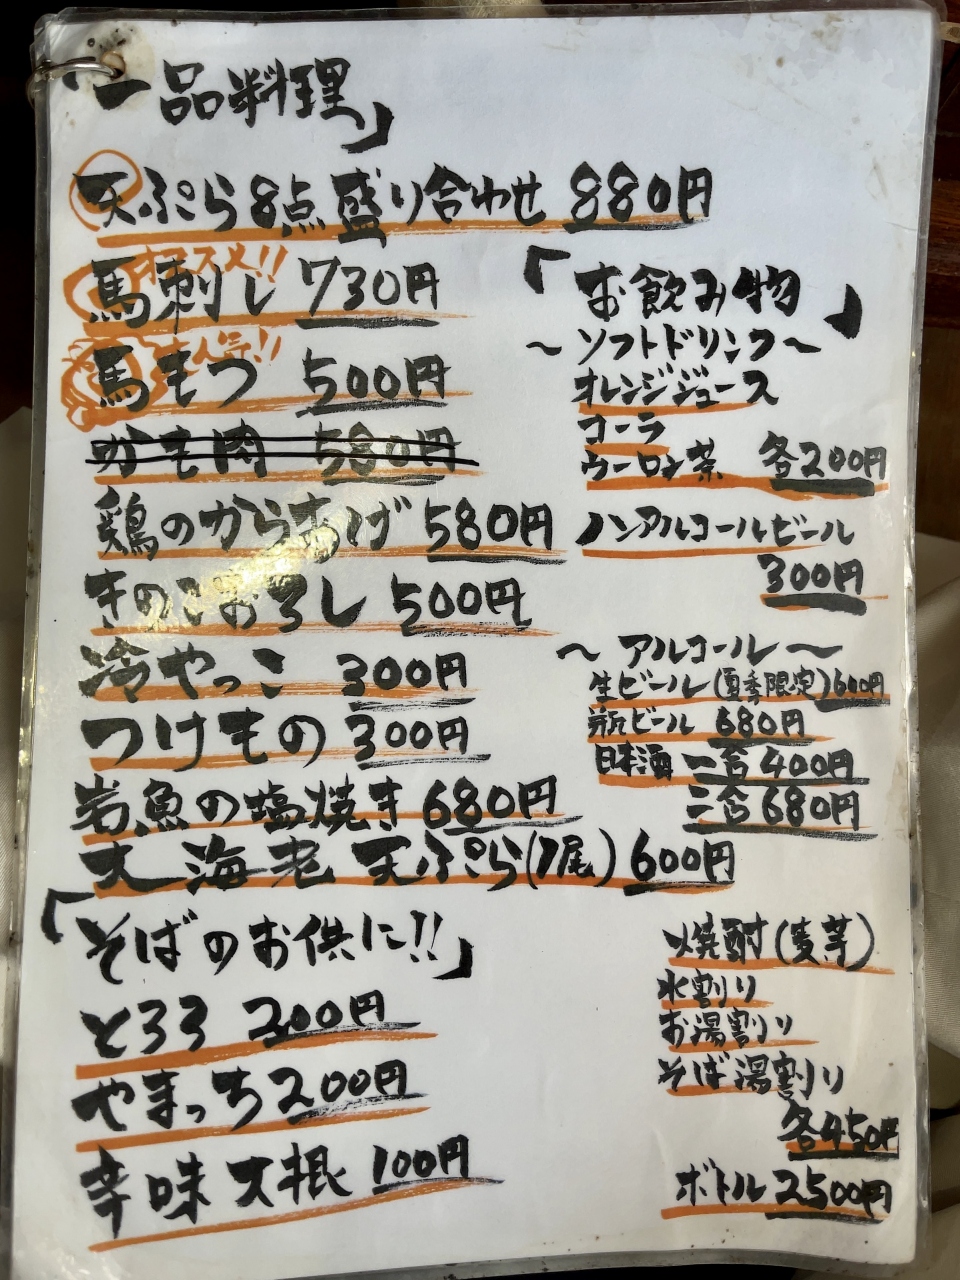 「一品料理」
天ぷら8点盛り合わせ 880円
オススメ!!
馬刺し 730円
馬もつ 500円
かも肉 580円
鶏のからあげ 580円
きのこおろし 500円
冷やっこ 300円
つけもの 300円
岩魚の塩焼き 680円
大海老天ぷら(1尾) 600円
「そばのお供に!!」
とろろ 200円
やまっち 200円
辛味大根 100円
「お飲み物」
~ソフトドリンク~
オレンジジュース
コーラ
ウーロン茶 各200円
ノンアルコールビール
300円
~アルコール~
生ビール(夏季限定)600円
瓶ビール 680円
日本酒 一合 400円
二合 680円
焼酎(麦芋)
水割り
お湯割り
そば湯割り
各450円
ボトル 2500円